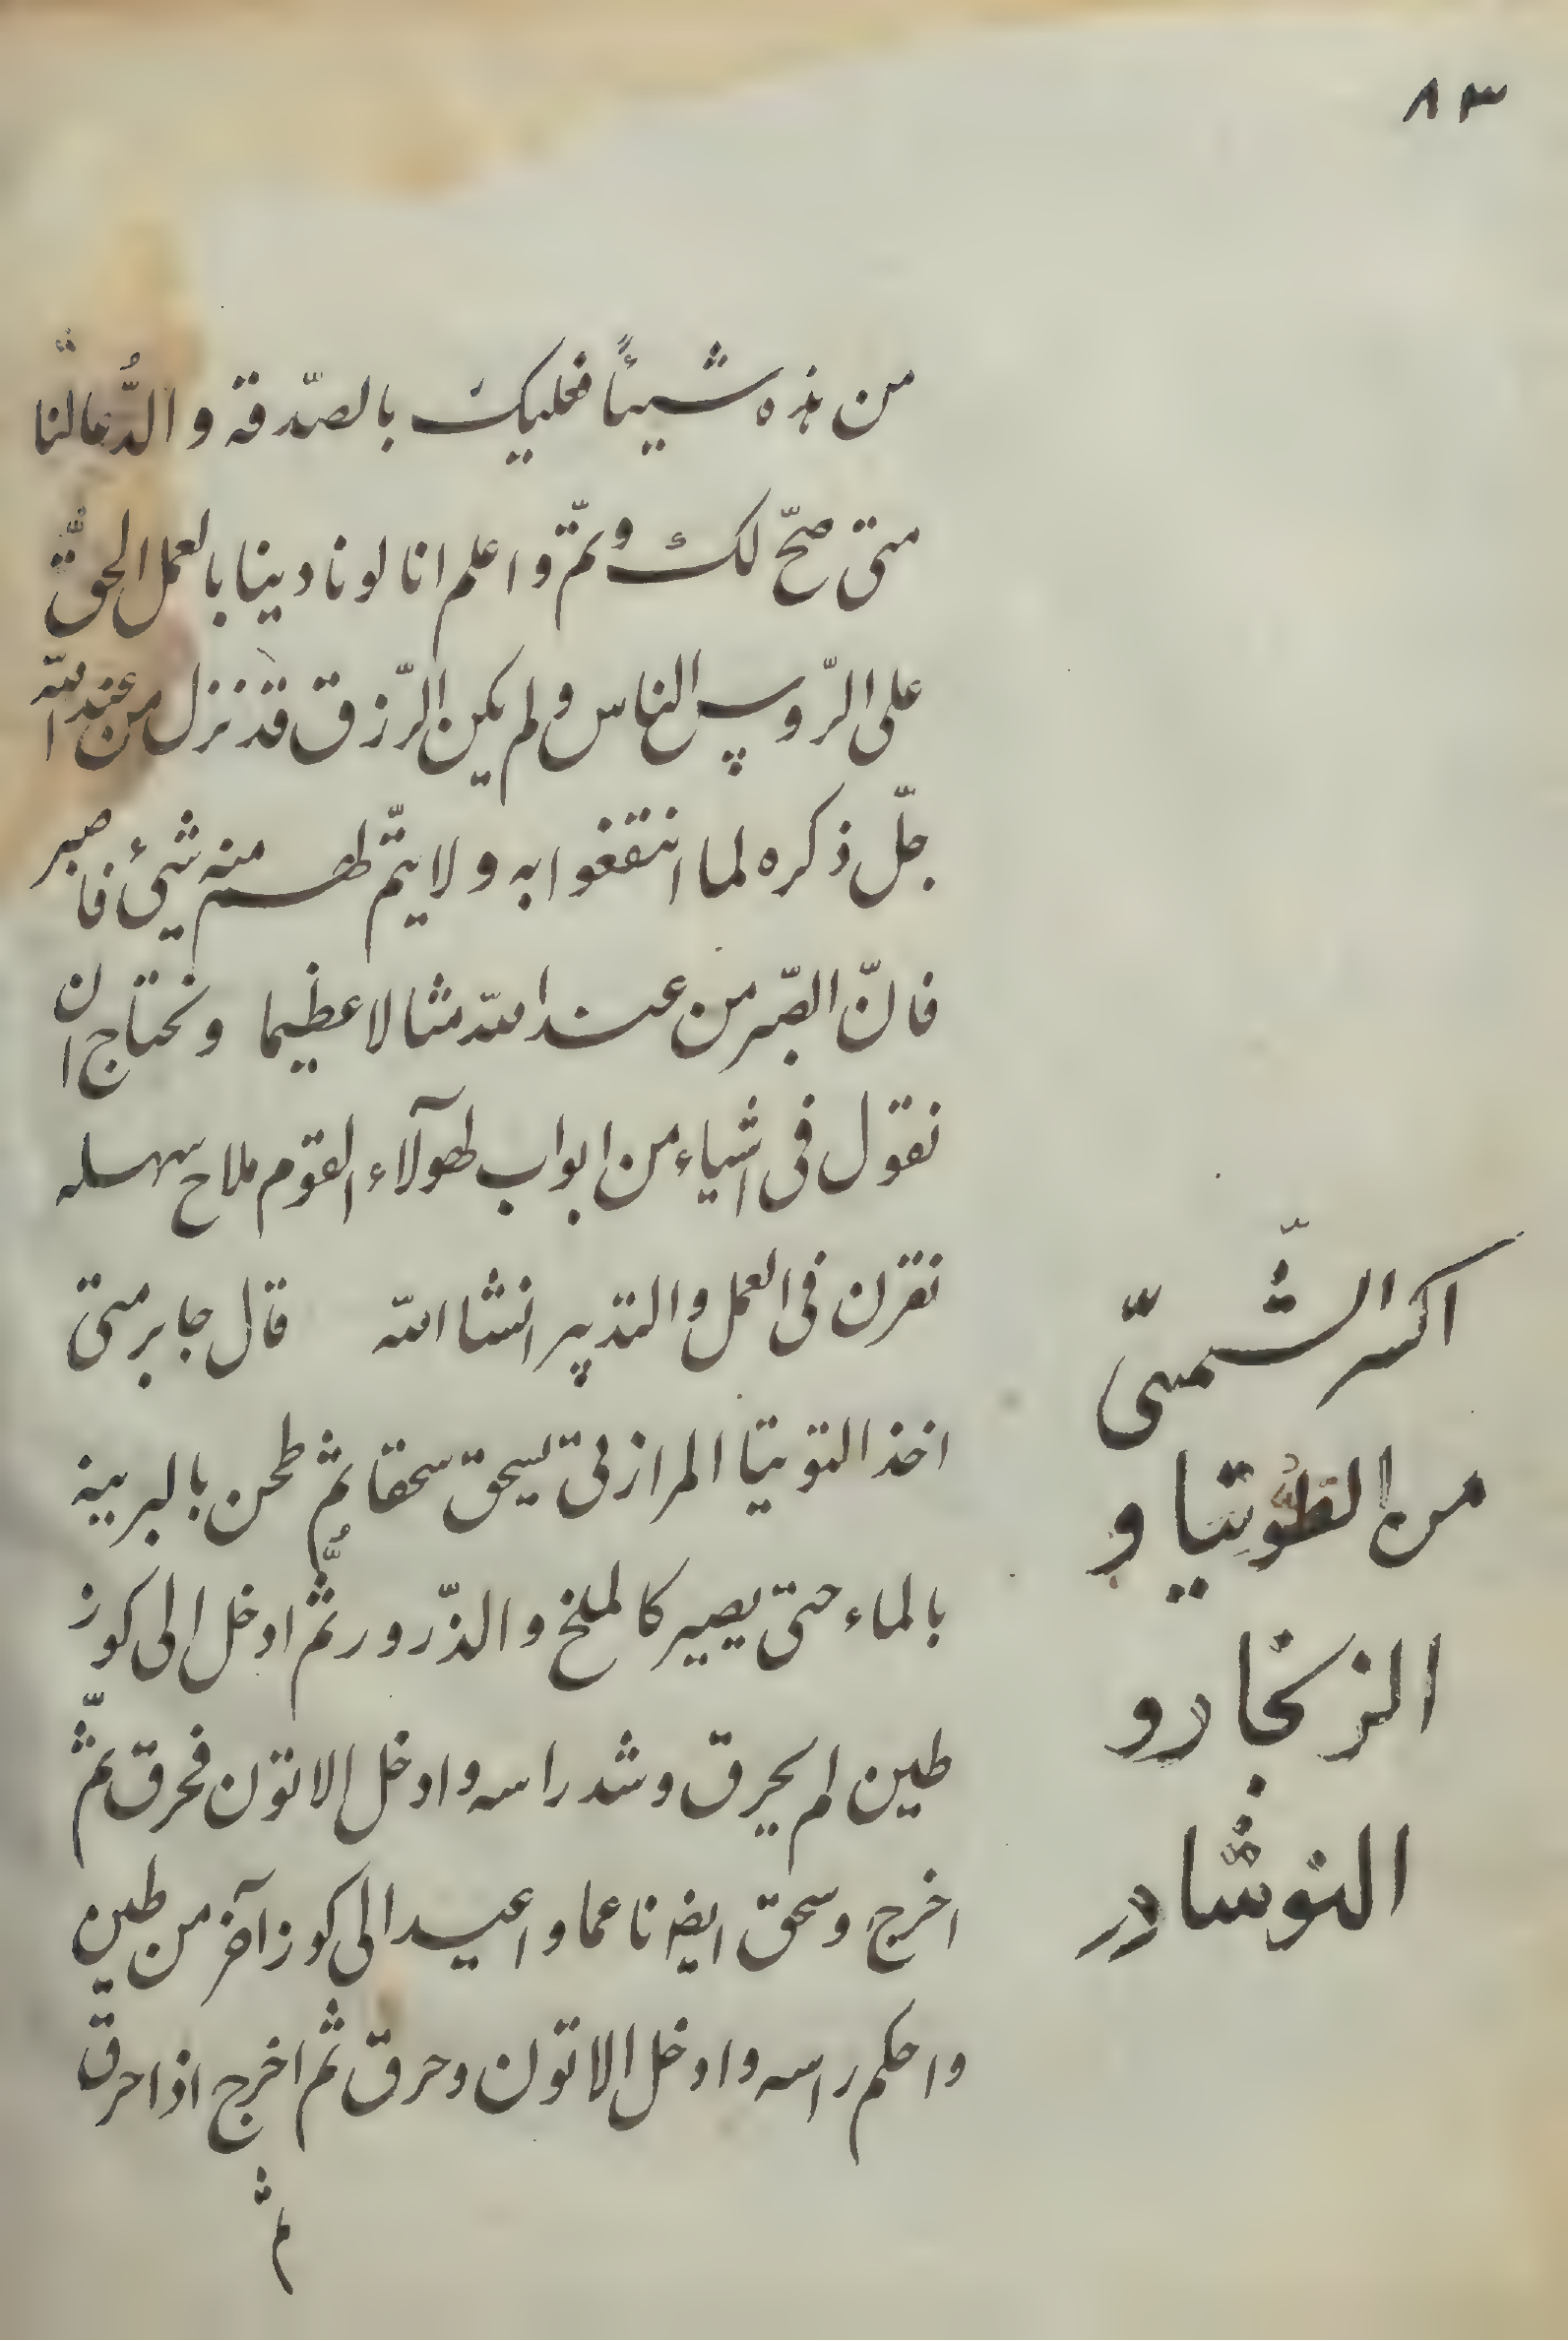 ٨٣
من هذه شيئًا فعليك بالصّدقة و الدُّعا لنا
متى صحّ لك و تمّ و اعلم انا لو نادينا بالعمل الحقّ
على الرّوس الناس و لم يكن الرّزق قد نزل من عند الله
جلّ ذكره لما انتفعوا به و لا يتمّ لهم منه شيئ فاصبر
فانّ الصّبر من عند الله مثالا عظيما و نحتاج ان
نقول فى اشياء من ابواب لهولآء القوم ملاح سهله
نقرن فى العمل و التدبير انشا الله قال جابر متى
اخذ التوتيا المرازقى سحق سحقا ثم طحن بالبربية
بالماء حتى يصير كالملخ و الذّرور ثُمّ ادخل الى كوز
طين لم يحرق و شد راسه و ادخل الاتون فحرق ثمّ
اخرج و سحق ايضا ناعما و اعيد الى كوز آخر من طين
و احكم راسه و ادخل الاتون و حرق ثم اخرج اذا احرق
ثم
اكسر الشّمسىّ
من الطوتيا و
الزنجار و
النوشادر